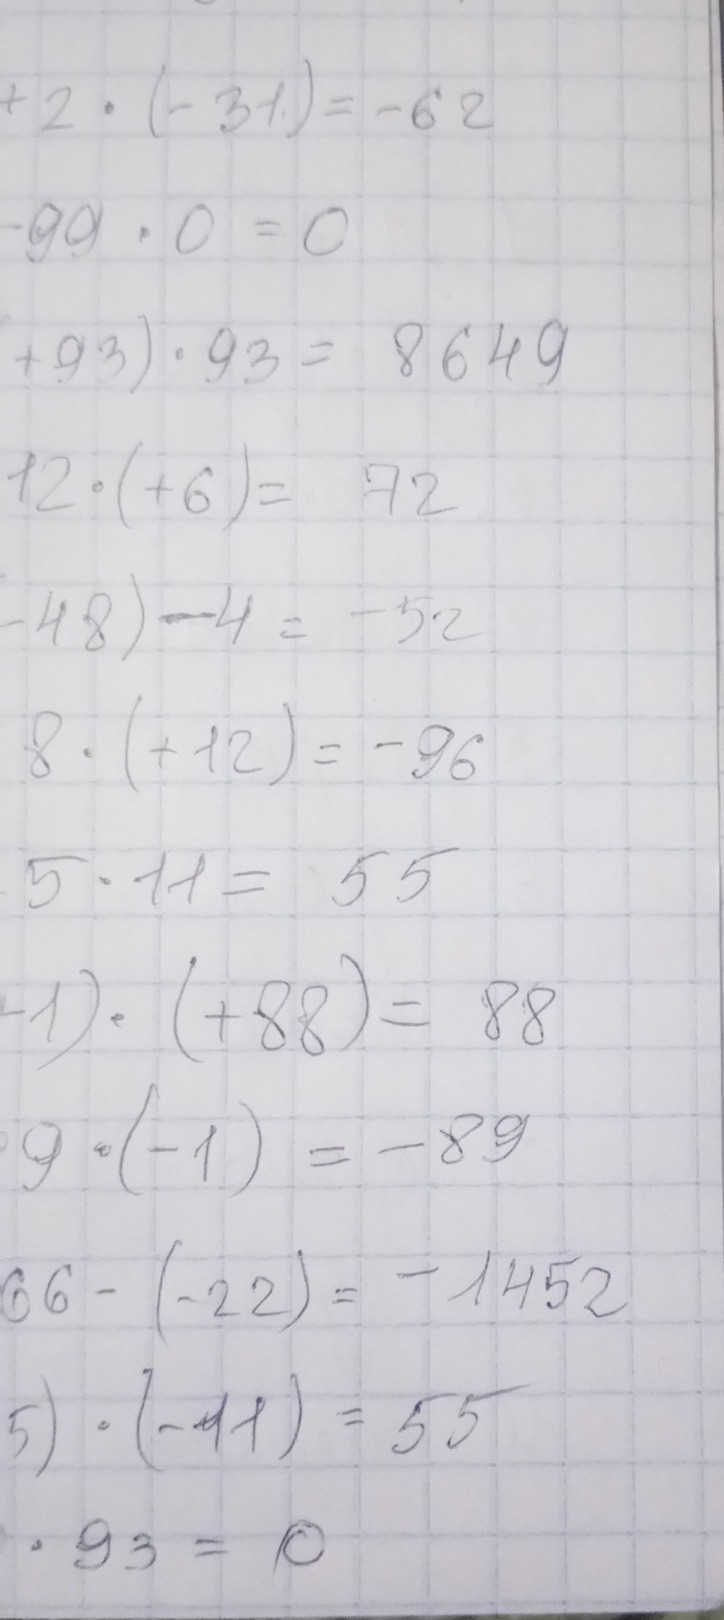 +2 · (-31) = -62
-99 · 0 = 0
+93) · 93 = 8649
12 · (+6) = 72
-48) - 4 = -52
8 · (+12) = -96
5 · 11 = 55
-1) · (+88) = 88
9 · (-1) = -89
66 - (-22) = -1452
5) · (-11) = 55
· 93 = 0